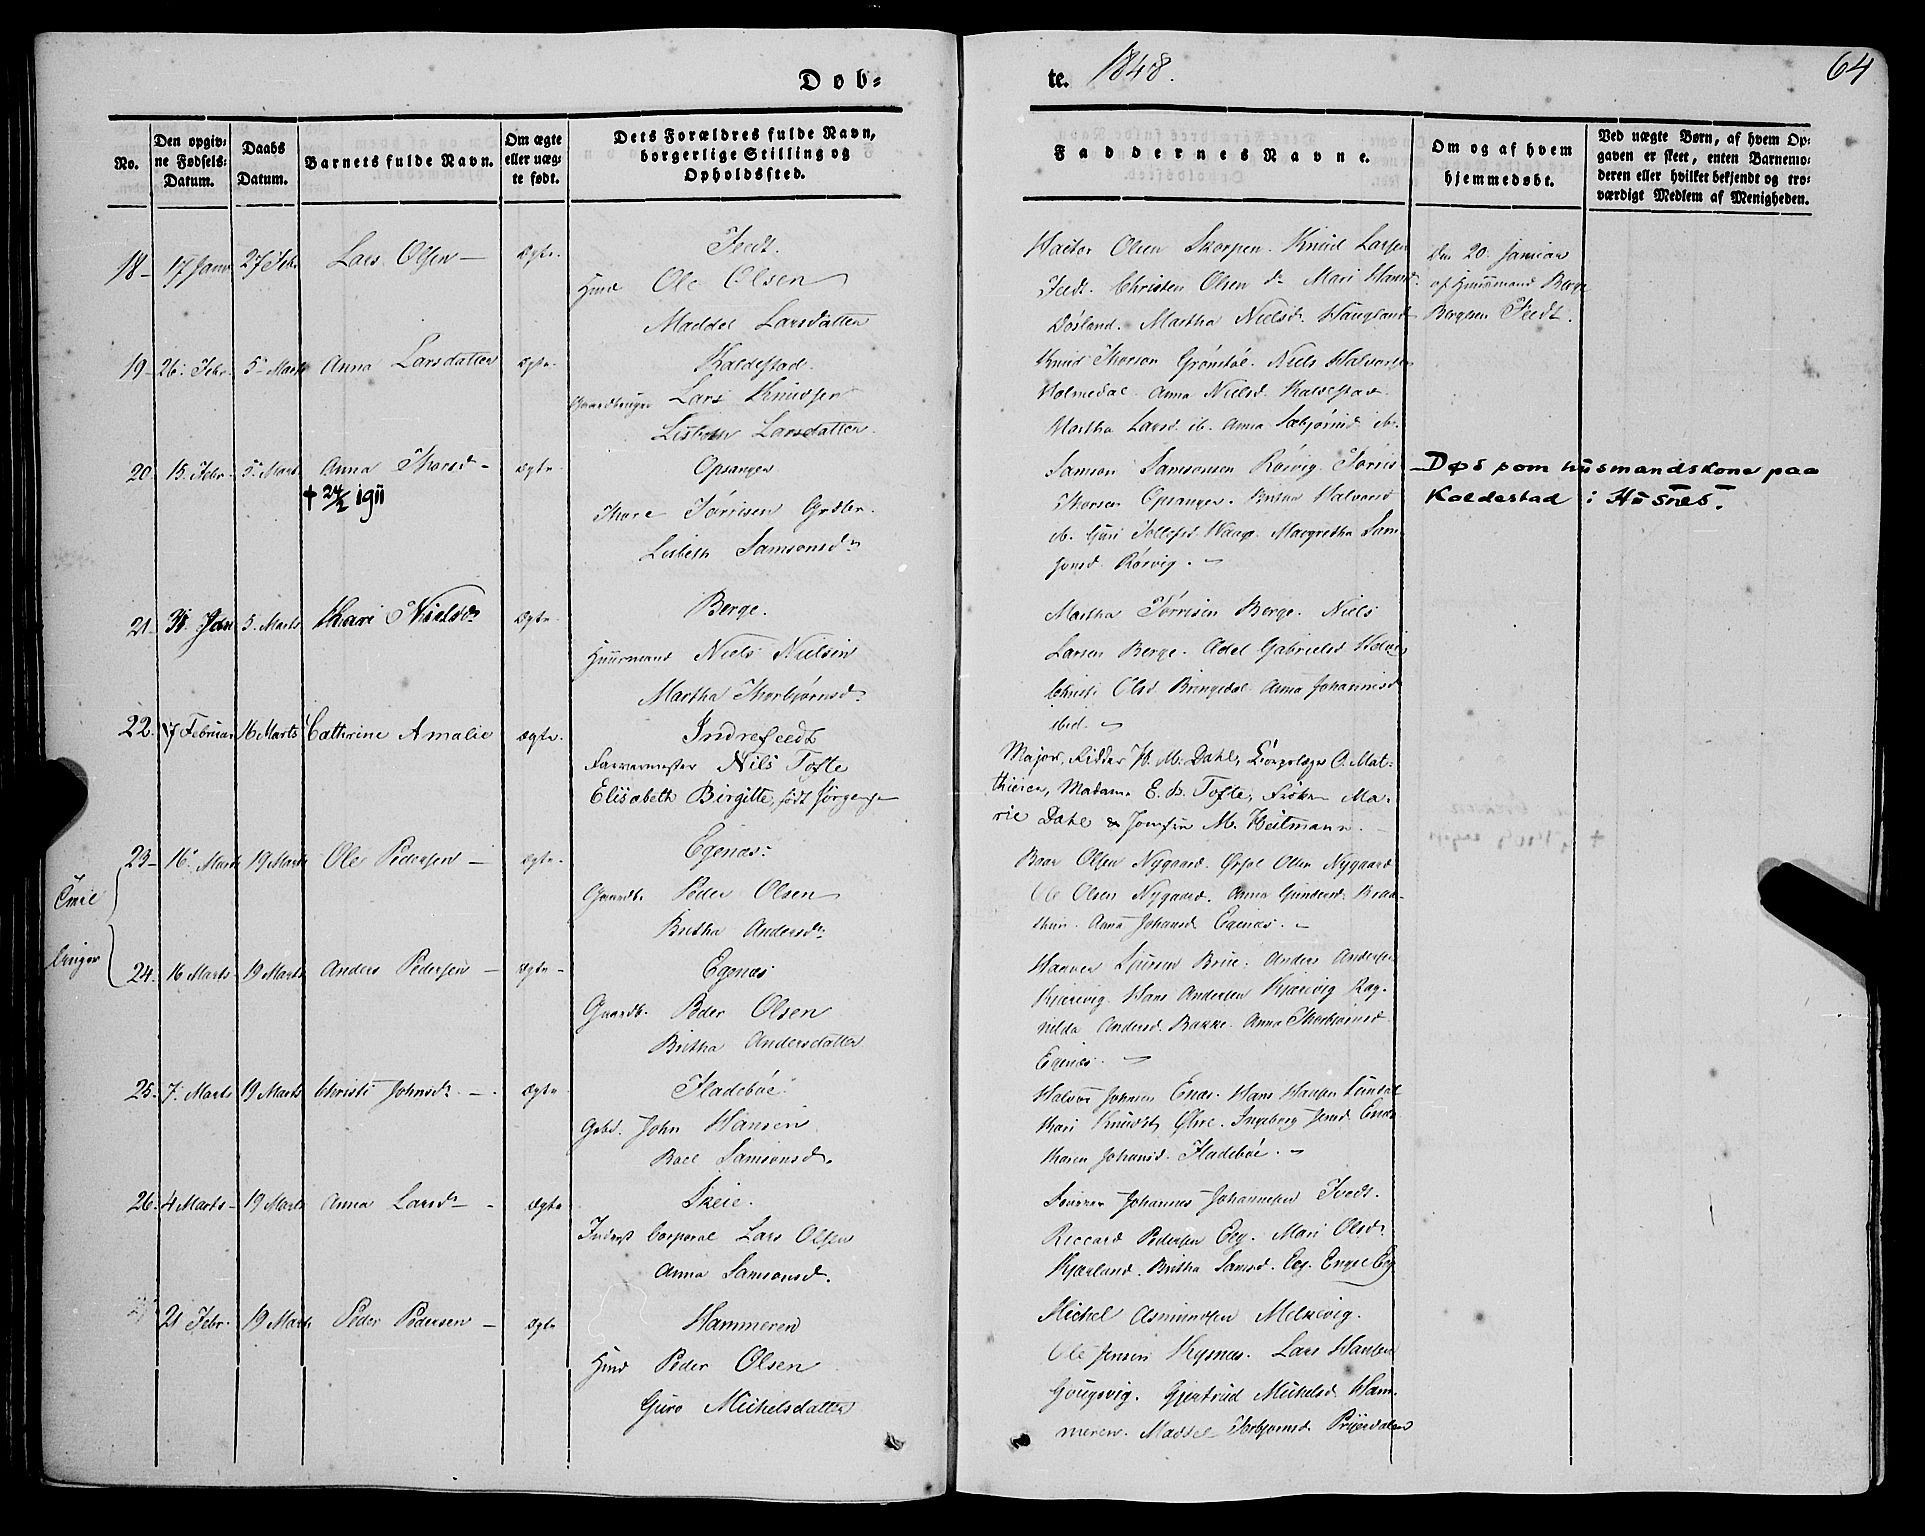 Døb-
te. 1848.
64
No.
Den opgiv-
ne Fødsels-
Datum.
Daabs
Datum.
Barnets fulde Navn.
Om ægte
eller uæg-
te født.
Dets Forældres fulde Navn,
borgerlige Stilling og
Opholdssted.
Faddernes Navne.
Om og af hvem
hjemmedøbt.
Ved uægte Børn, af hvem Op-
gaven er skeet, enten Barnemo-
deren eller hvilket bekjendt og tro-
værdigt Medlem af Menigheden.
18- 17 Janu 27 Feb. Lars Olsen - Ægte.
Feedt.
Huusm Ole Olsen
Maddel Larsdatter
Olsen Skorpen. Knud Larsen
Feedt. Christen Olsen do Mari Hansd.
Døsland. Martha Nielsd. Haugland
Den 20. Januar
af Huusmand Berge
Bergesen Feedt.
19- 26. Febr. 5 Marts Anna Larsdatter Ægte.
Kaldestad.
Gaardbruger Lars Knudsen
Lisbeth Larsdatter.
Knud Thorsen Grønstøl. Niels Halvorsen
Holmedal. Anna Nielsd. Kaldestad.
Martha Larsd. ib. Anna Sæbjørnsd. ib.
20 15. Febr. 5 Marts Anna Thorsd - Ægte.
† 24/2 1911
Opsanger
Thore Tørrisen Grdbr.
Lisbeth Samsonsdr
Samson Samsonsen Rørvig. Tørris
Thorsen Opsanger. Britha Halvorsd
ib. Guri Tollefsd. Waage. Margretha Sam-
sonsd. Rørvig. -
Død som husmandskone paa
Kaldestad i Husnes.
21- 31. Jan 5. Marts Kari Nielsdr Ægte.
Berge.
Huusmand Niels Nielsen
Martha Thorbjørnsd.
Martha Tørrisen Berge. Niels
Larsen Berge. Adel Gabrielsd
Christi Olsd. Bringedal. Anna Johannesd
ibid. -
22. 17 Februar 16 Marts Cathrine Amalie Ægte.
Indrefeedt
Farvermester Nils Tofte
Elisabeth Birgitte, født Jørgensen
Major, Ridder H. M. Dahl, Corpslæge C. Mat-
thiesen, Madam E. B. Tofte, Frøken Ma-
rie Dahl & Jomfru M. Heitmann. -
23- 16 Marts 19 Marts Ole Pedersen - Ægte.
Egenæs.
Gaardb. Peder Olsen
Britha Andersdr.
Baar Olsen Nygaard. Olsen Nygaard
Ole Olsen Nygaard. Anna Gundersd. Braa-
then. Anna Johansd Egenæs. -
Tvil
linger
24. 16 Marts 19 Marts Anders Pedersen - Ægte -
Egenæs
Gaardb. Peder Olsen
Britha Andersdatter
Haaver Sjursen Brue. Anders Andersen
Kjærevig. Hans Andersen Kjærevig Rag-
nilda Andersd. Bakke. Anna Thorbjørnsd
Egenæs. -
25. 7. Marts 19 Marts Christi Johnsdr. - Ægte
Fladebøe.
Gbd. John Hansen
Roel Samsonsd.
Halvor Johnsen Enæs. Hans Hansen Sundal
Kari Knudsd. Ølve. Ingeborg Jensd. Enæs
Karen Johansd. Fladebøe. -
26. 4 Marts 19 Marts Anna Larsd - Ægte
Skeie.
Inderst Corporal Lars Olsen
Anna Samsonsd.
Johannes Johannesen Tvedt.
Riccard Pedersen Eeg. Mari Olsdr.
Kjærland. Britha Samsd. Eeg. Engel Eeg
21 Febr. 19 Marts Peder Pedersen - Ægte
Hammeren
Huusm Peder Olsen
Guro Michelsdatter
Michel Asmundsen Melkevig.
Ole Jensen Lars Hansen
Gjøugsvig. Gjertrud Michelsd. Ham-
meren. Maddel Thorbjørnsd.